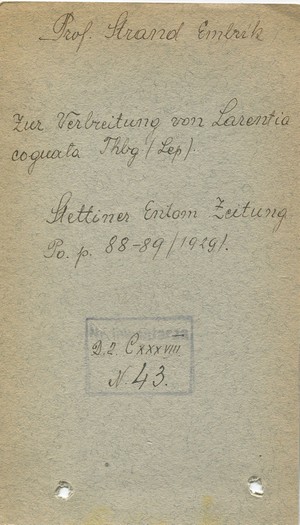 Prof. Strand Embrik
Zur Verbreitung von Larentia
coguata Thbg (Lep).
Stettiner Entom Zeitung
Po. p. 88-89 (1929).
D.2. CXXXVIII
N. 43.